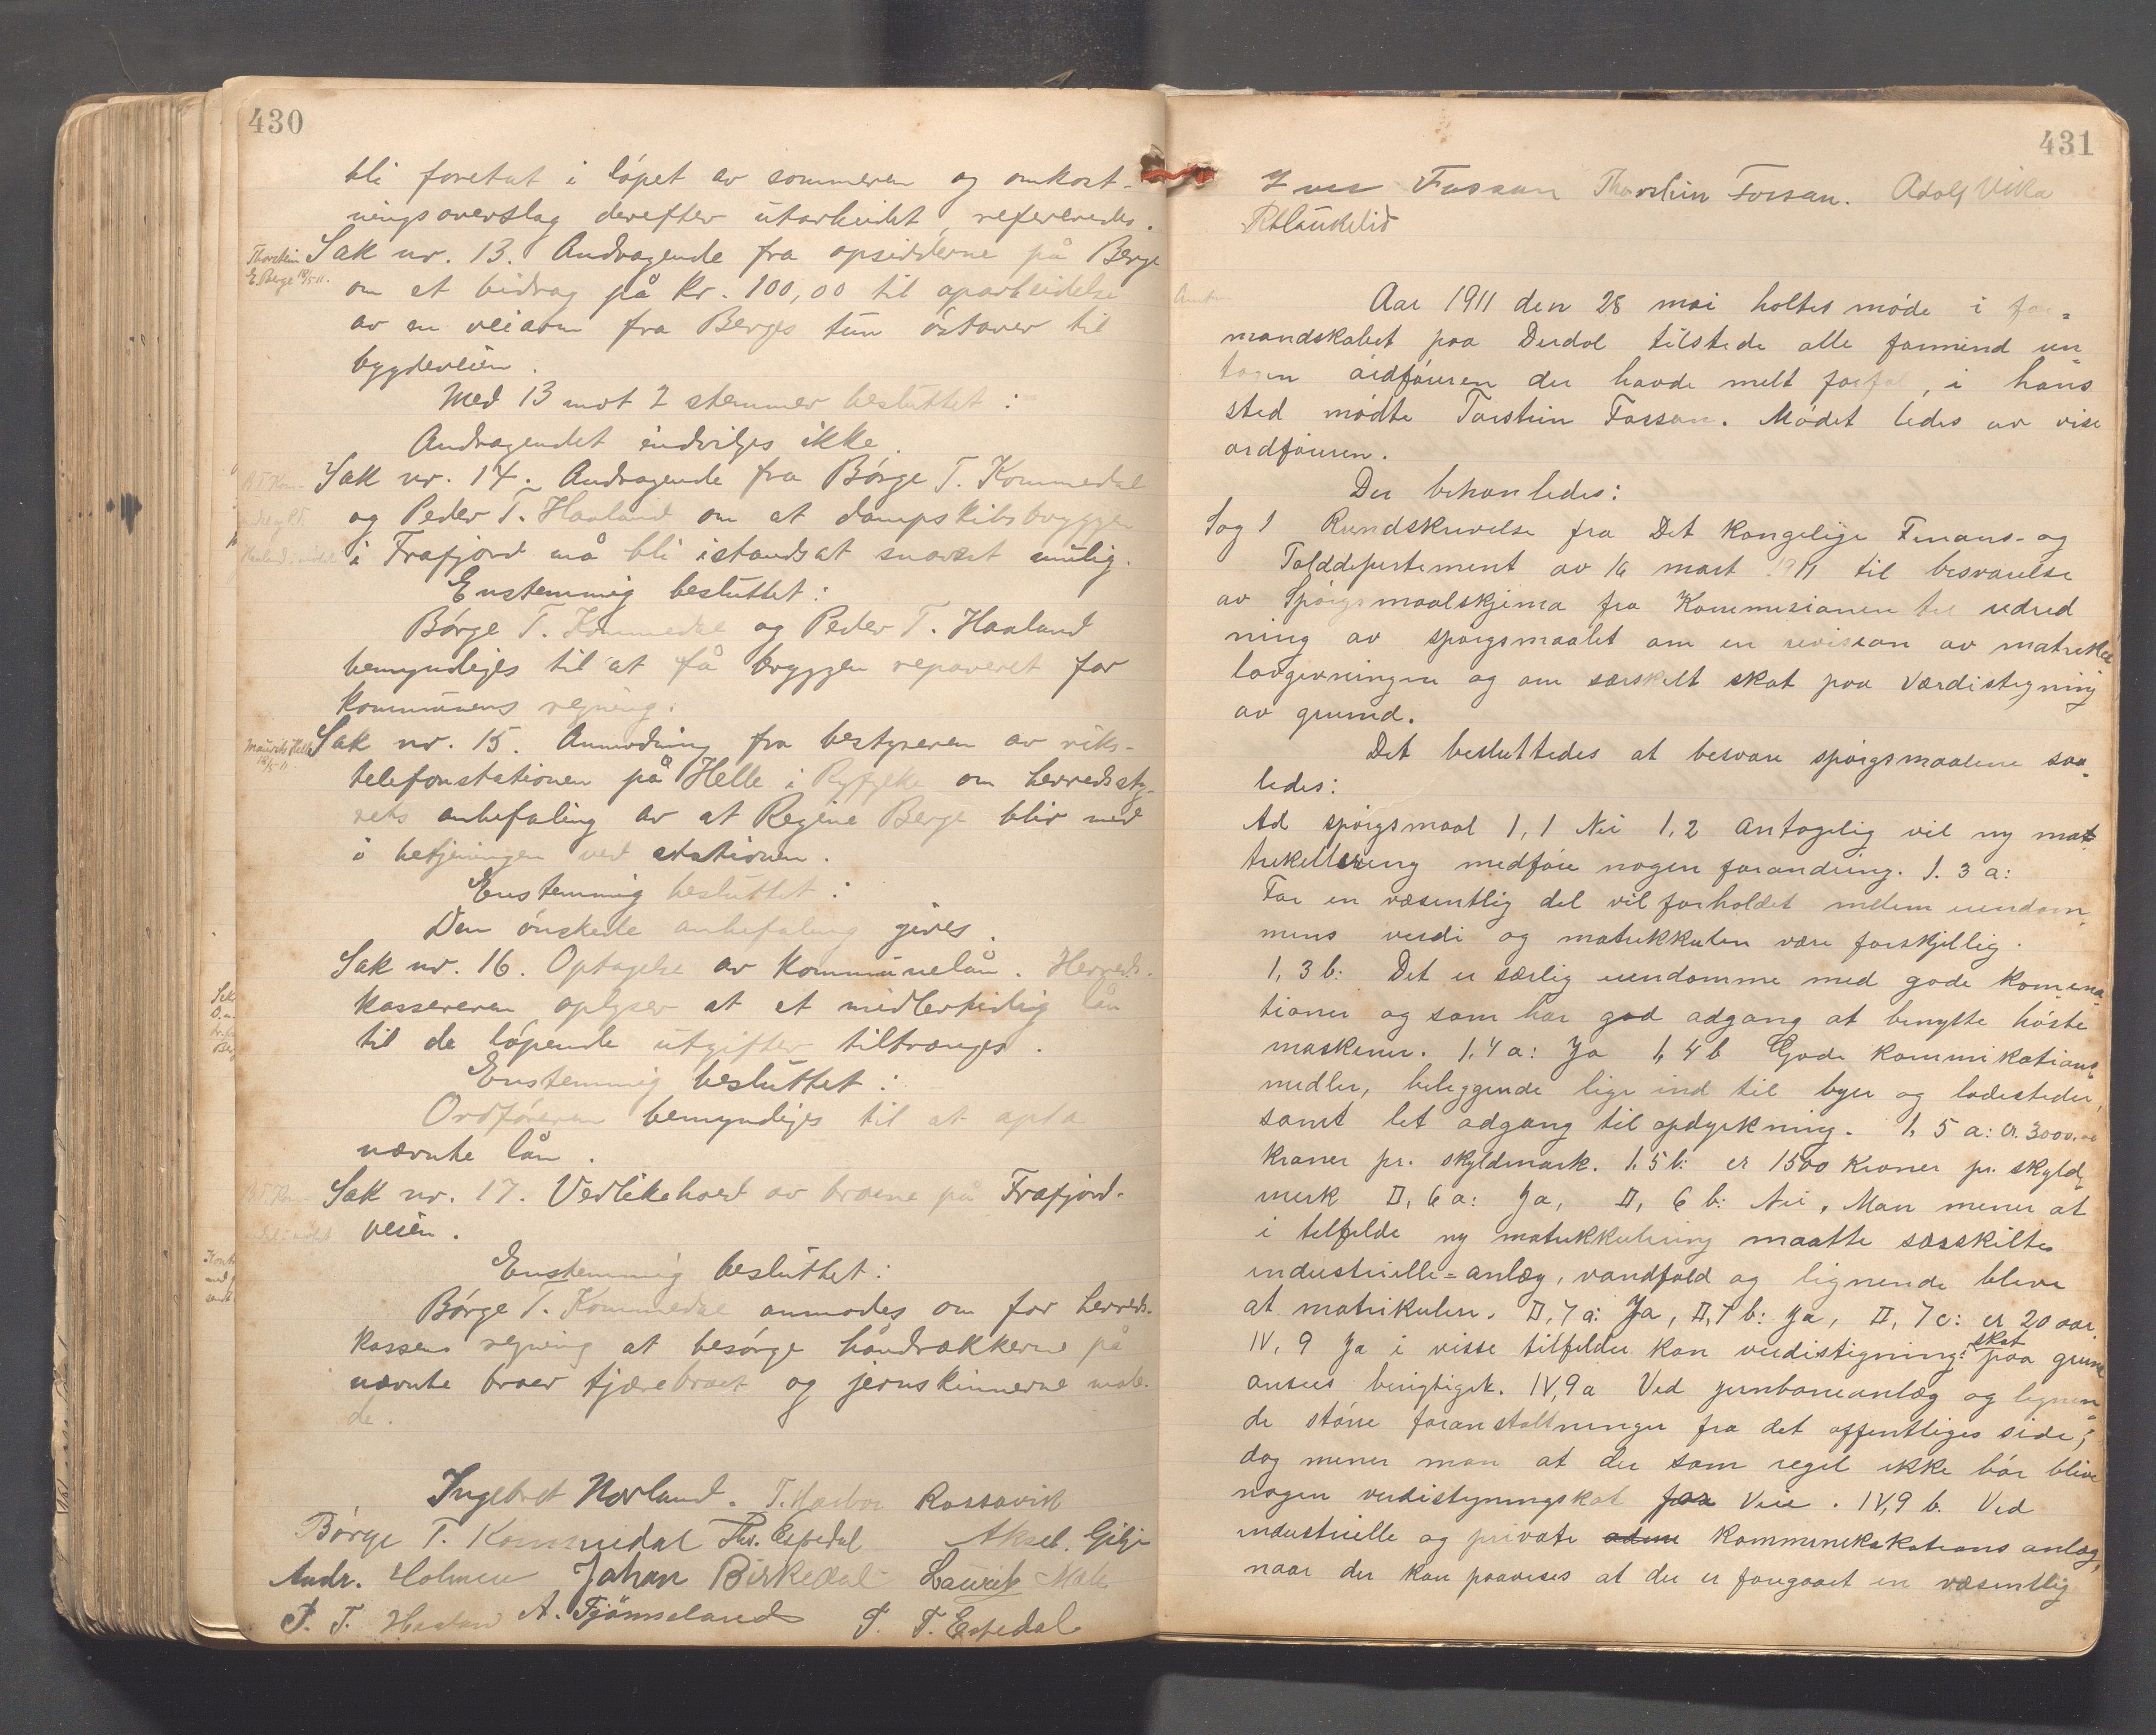 430
bli foretat i löpet av sommeren og omkost-
ningsoverslag derefter utarbeidet, refereredes.
Thorstein
E. Berge 18/5-11.
Sak nr. 13. Andragende fra opsidderne på Berge
om et bidrag på kr. 100,00 til oparbeidelse
av en veiarm fra Berge tun östover til
bygdeveien.
Med 13 mot 2 stemmer besluttet:
Andragendet indvilges ikke.
Sak nr. 14. Andragende fra Börge T. Kommedal
og Peder T. Haaland om at dampskibsbryggen
i Frafjord må bli istandsat snarest mulig.
Enstemmig besluttet:
Börge T. Kommedal og Peder T. Haaland
bemyndiges til at få bryggen reparert for
kommunens regning.
Maurits Helle
18/5-11
Sak nr. 15. Anmodning fra bestyreren av riks-
telefonstationen på Helle i Ryfylke om herredssty-
rets anbefaling av at Regine Berge blir med
i betjeningen ved stationen.
Enstemmig besluttet:
Den önskede anbefaling gives.
Sak nr. 16. Optagelse av kommunelån. Herreds-
kassereren oplyser at et midlertidig lån
til de löpende utgifter tiltrænges.
Enstemmig besluttet:
Ordföreren bemyndiges til at opta
nævnte lån.
Sak nr. 17. Vedlikehold av broene på Frafjord-
veien.
Enstemmig besluttet:
Börge T. Kommedal anmodes om for herreds-
kassens regning at besörge håndrækkerne på
nævnte broer tjærebræt og jernskinnerne male-
de.
Ingebret Norland. Rossavik
Börge T. Kommedal Thv. Espedal Aksel. Gilje
Andr. Holmen Johan Birkedal Laurits Mæle
P. T. Haaland A. Fjömseland T. T. Espedal
431
Fossan Thorstein Fossan. Adolf Vika
R Laukelid
Aar 1911 den 28 mai holtes möde i for-
mandskabet paa Dirdal tilstede alle formend un-
tagen ordföreren der havde melt forfal, i hans
sted mödte Torstein Fossan. Mödet ledes av vise
ordföreren.
Der behanledes:
Sag 1 Rundskrivelse fra Det kongelige Finans- og
Tolddepertement av 16 mart 1911 til besvarelse
av Spörgsmaalskjema fra Kommisionen til udred
ning av spörgsmaalet om en revision av matrikel
lovgivningen og om særskilt skat paa Værdistigning
av grund.
Det besluttedes at besvare spörgsmaalene saa-
ledes:
Ad spörgsmaal 1,1 Nei 1,2 Antagelig vil ny mat-
trikellering medföre nogen forandring. 1. 3 a:
For en væsentlig del vil forholdet mellem eiendom-
mens verdi og matrikkulen være forskjellig.
1, 3 b: Det er særlig eiendomme med gode komuna-
tioner og som har god adgang at benytte höste
maskener. 1,4 a: Ja 1,4 b Gode kommikations-
midler, beleggende lige ind til byer og ladesteder,
samt let adgang til opdyrkning. 1, 5 a: cr. 3000,00
kroner pr. skyldmark. 1.5 b: cr 1500 kroner pr. skyld-
merk II, 6 a: Ja, II, 6 b: Nei. Man mener at
i telfelde ny matrikkulering maatte særskilte
industrielle-anlæg, vandfald og lignende blive
at matrikulere. II, 7 a: Ja, II, 7 b: Ja, II, 7 c: cr 20 aar
IV, 9 Ja i visse tilfelder kan verdistigning skat paa grund
ansees berigtiget. IV, 9 a Ved jernbaneanlæg og lignen-
de störe foranstaltninger fra det offentliges side,
dog mener man at der som regel ikke bör blive
nogen verdistigningskat for Veie. IV, 9 b. Ved
industrielle og private kommunikakations anlæg,
naar der kan paavises at der er forgaaet en væsentlig